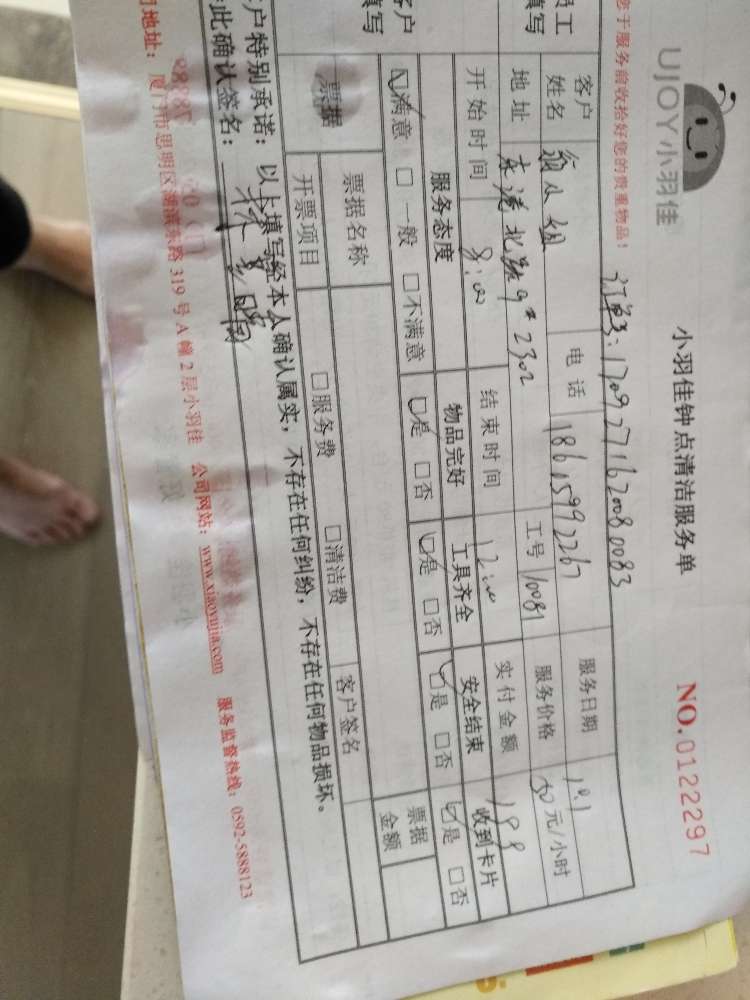 UJOY小羽佳
小羽佳钟点清洁服务单
NO.0122297
您于服务前收拾好您的贵重物品!
订单号:1709271620080083
客户姓名
小姐
电话
18615992267
服务日期
10.1
地址
北路9# 2302
工号
10081
服务价格
50元/小时
开始时间
8:00
结束时间
12:00
实付金额
199
服务态度
物品完好
工具齐全
安全结束
收到卡片
☑满意 □一般 □不满意
☑是 □否
☑是 □否
☑是 □否
☑是 □否
员工
填写
客户
填写
票据
票据名称
票据金额
开票项目
□服务费 □清洁费
客户签名
客户特别承诺:以上填写经本人确认属实,不存在任何纠纷,不存在任何物品损坏。
此确认签名:
司地址:厦门市思明区湖滨东路319号A幢2层小羽佳 公司网站:www.xiaoyujia.com 服务监督热线:0592-5888123